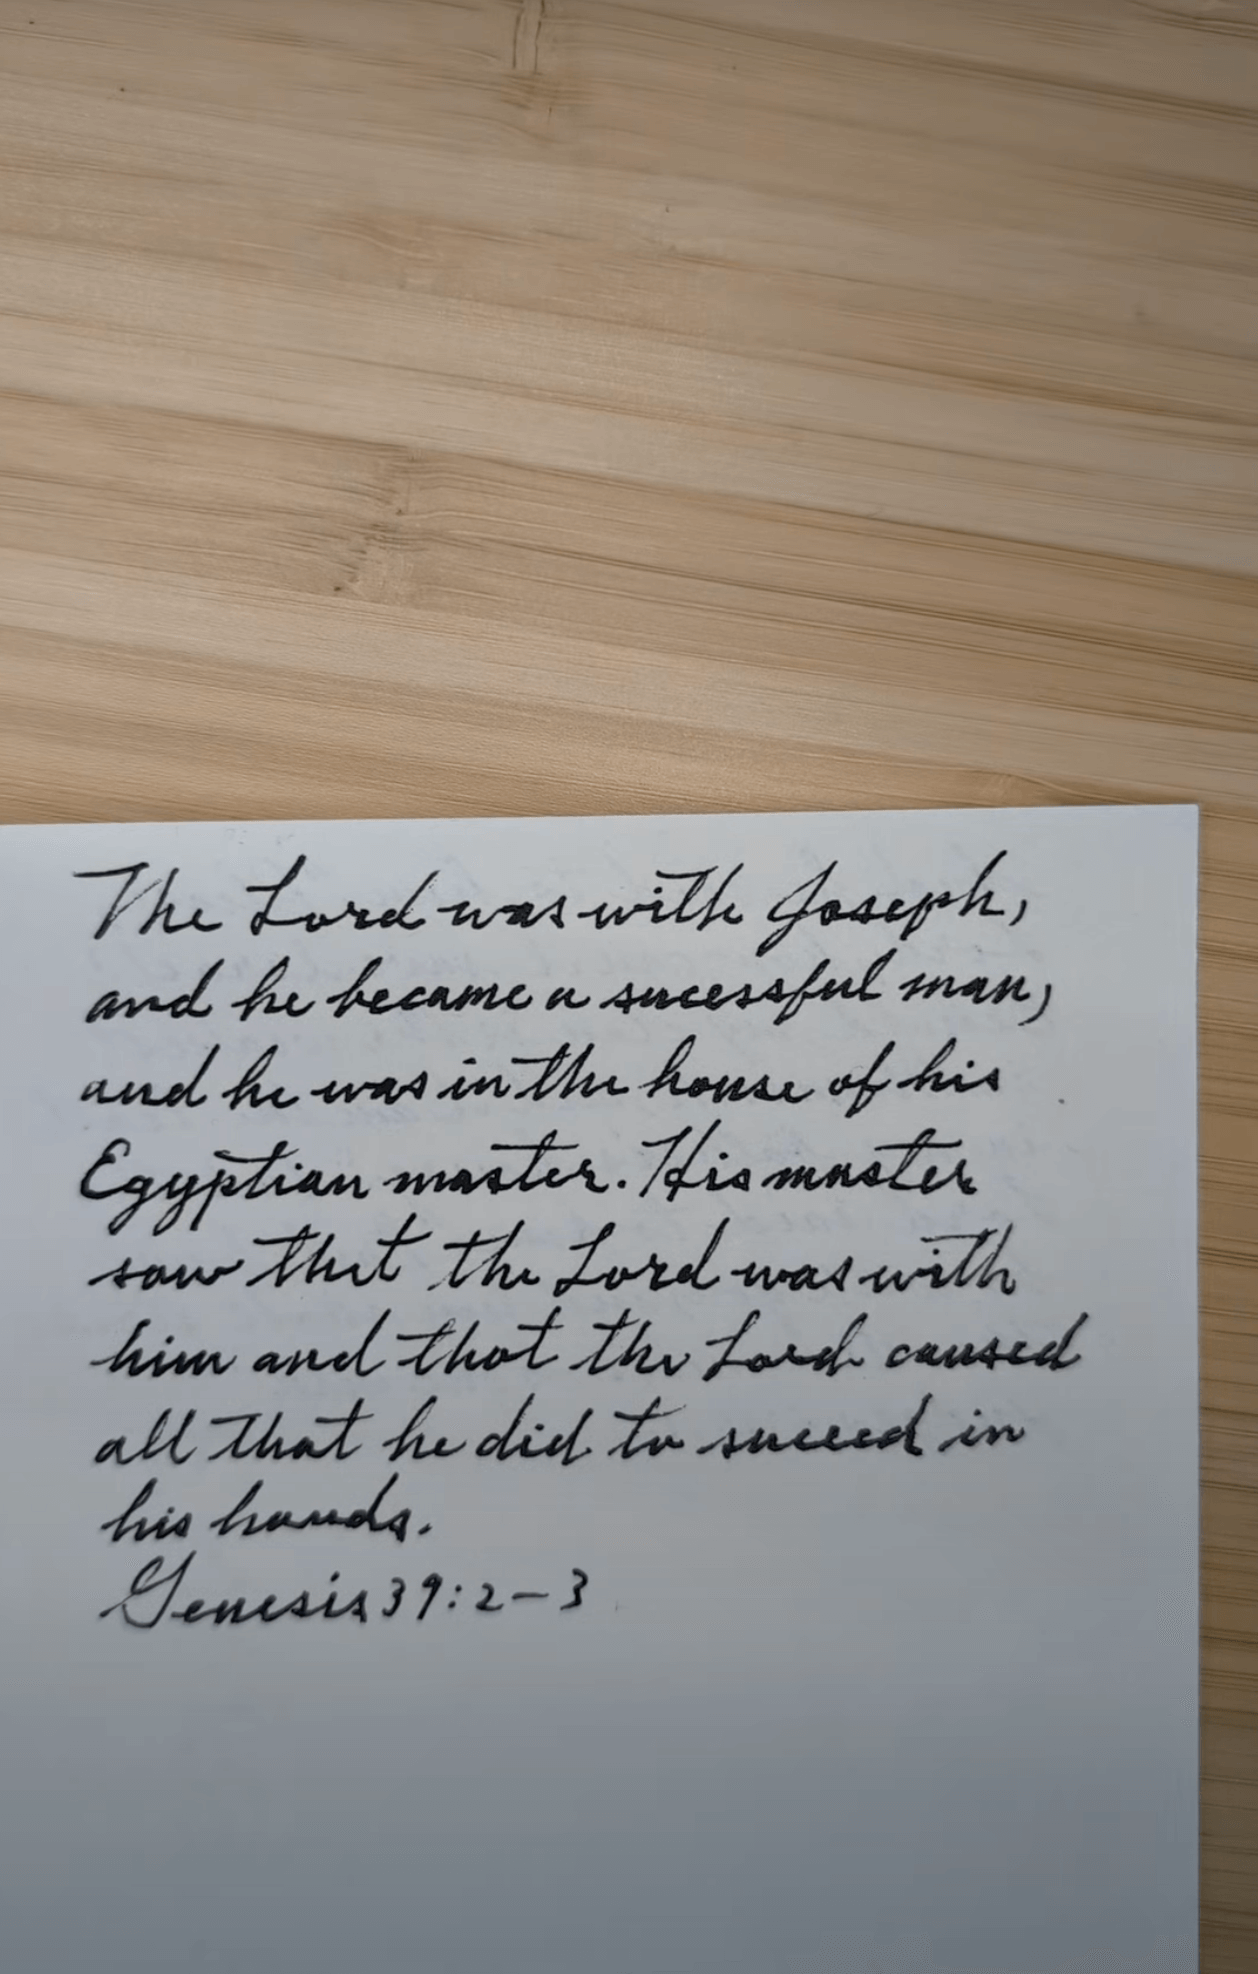 The Lord was with Joseph,
and he became a sucessful man,
and he was in the house of his
Egyptian master. His master
saw that the Lord was with
him and that the Lord caused
all that he did to succeed in
his hands.
Genesis 39:2-3